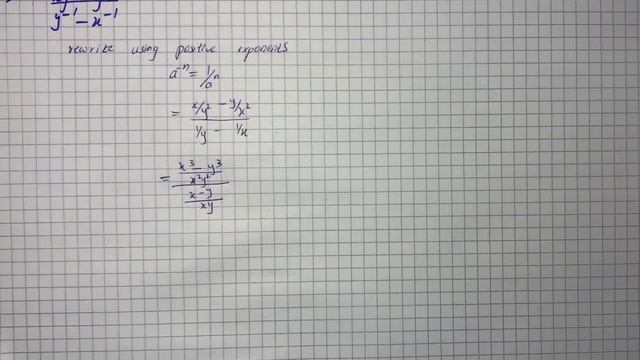 y⁻¹ − x⁻¹
rewrite using positive exponents
a⁻ⁿ = 1/aⁿ
= x/y² − y/x²
1/y − 1/x
= x³ − y³
x²y²
x − y
xy